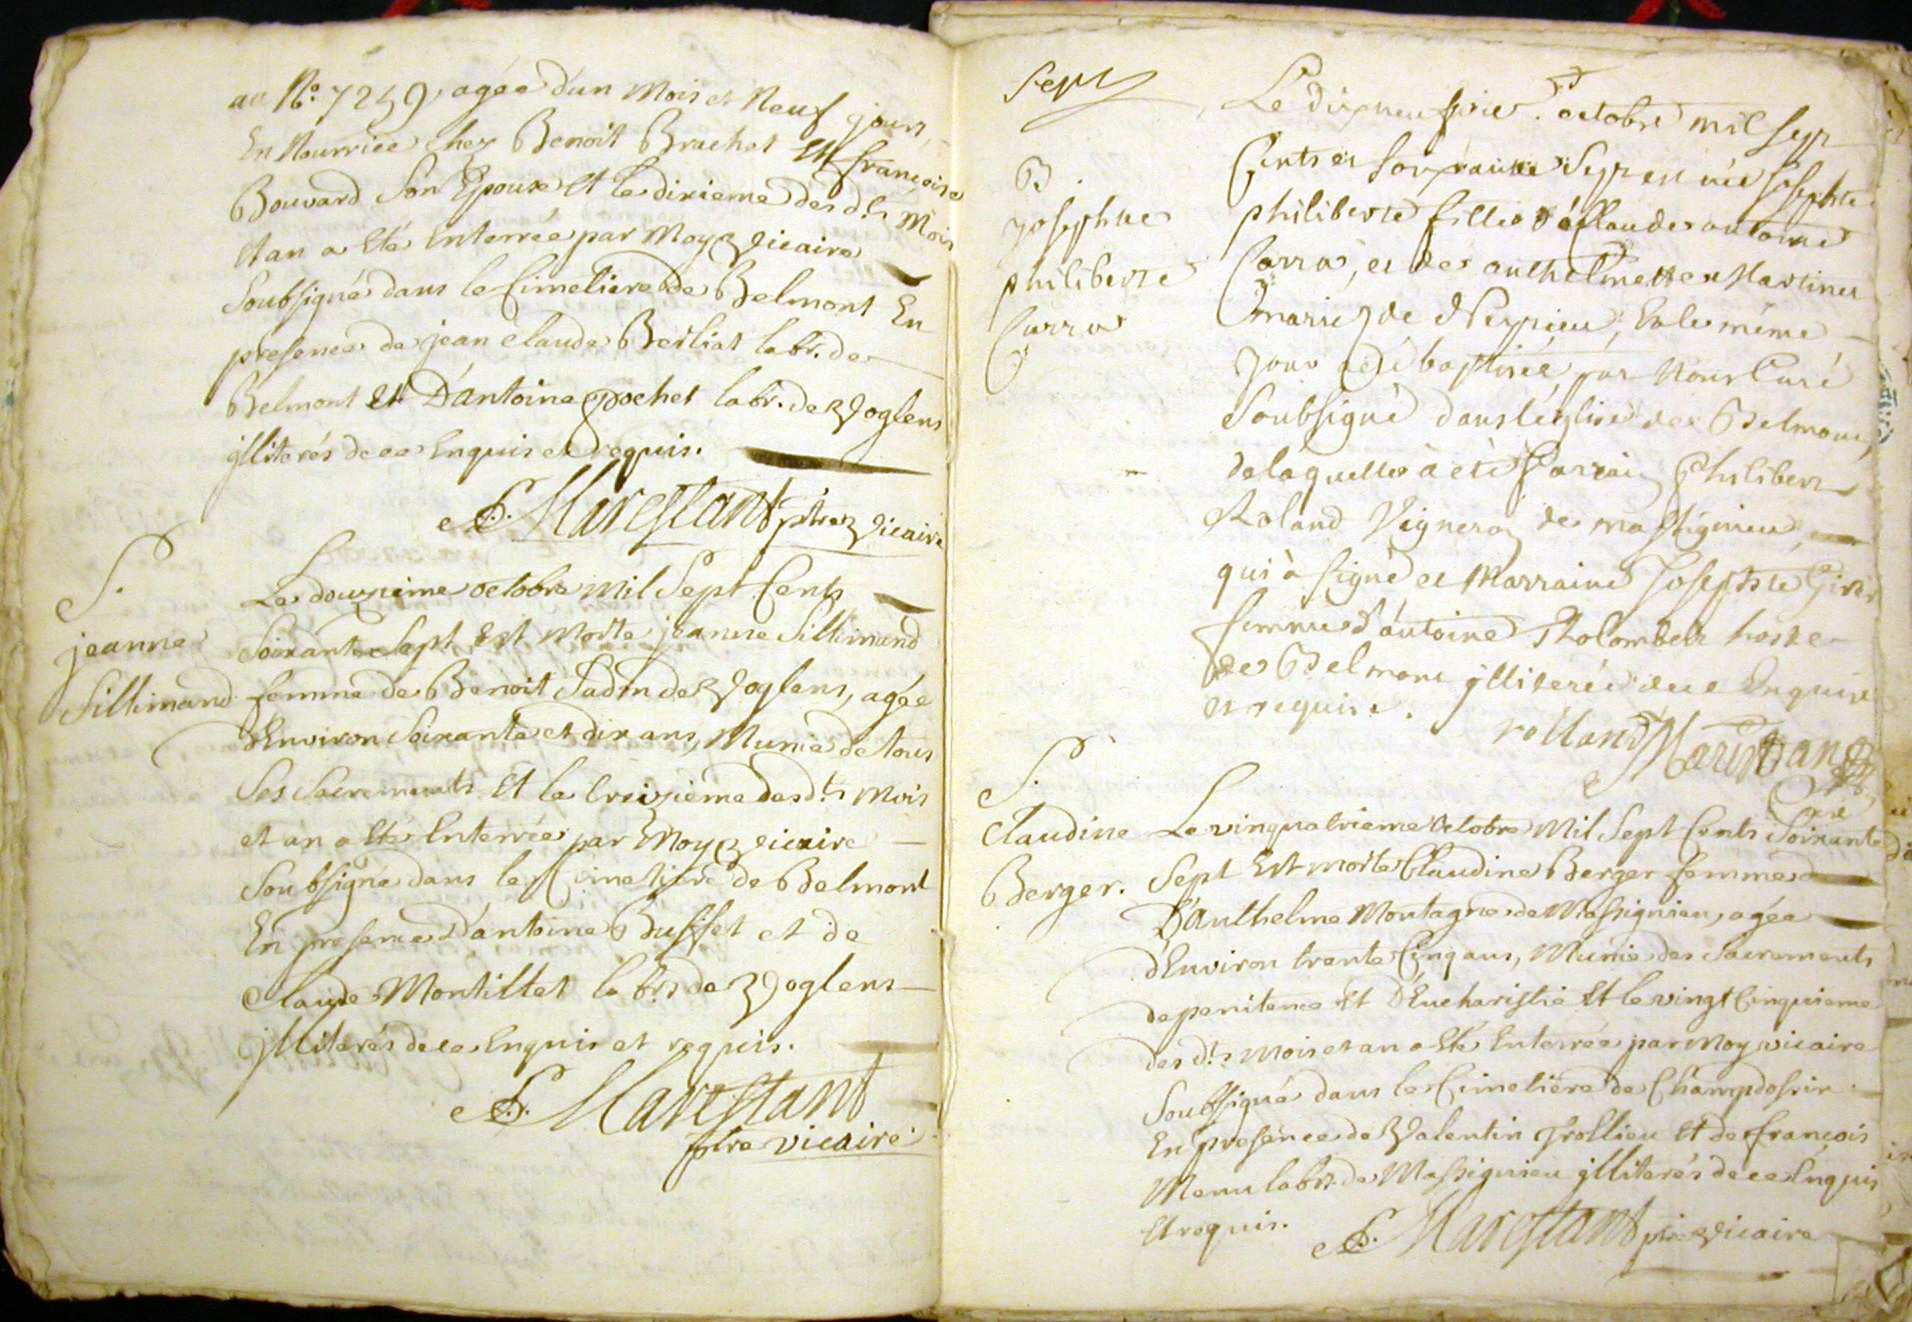 au N.° 7259, agée d'un mois et neuf jours,
En Nourrice chez Benoit Brachet Et françoise
Bouvard Son Epouse Et le dixieme des d.ts Mois
et an a Eté Enterrée par Moy vicaire
Soubsigné dans le Cimetiere de Belmont En
presence de jean claude Berliat labr. de
Belmont Et D'antoine pochet labr. de voglens
jlliterés de ce Enquis et requis.
Marestant ptre vicaire
S.
jeanne
Sillimand
Le douzieme octobre Mil Sept Cents
Soixante Sept Est Morte jeanne Sillimand
femme de Benoit Sadin de voglens, agée
d'Environ Soixante et dix ans, Munie de tous
Ses Sacrements Et le treizieme des d.ts Mois
et an a Eté Enterrée par Moy vicaire
Soubsigné dans le Cimetiere de Belmont
En presence D'antoine Buffet et de
Claude Montillet labrs de voglens
jlliterés de ce Enquis et requis.
Marestant
ptre vicaire
Sept
B.
josephte
philiberte
Carra
Le dix neuf octobre mil sept
Cents et soixante Sept est née josephte
philiberte fille de Claude antoine
Carra, et de anthelmette Martine
mariés de Peyrieu, Et le même
jour a été baptisée, par Nous Curé
Soubsigné dans l'église de Belmont,
de laquelle à été Parrain Philibert
Roland Vigneron de massignieu
qui à signé et Marraine Josephte
femme d'antoine Rolombet hoste
de Belmont jlliterée de ce Enquise
et requise.
rolland Marestan
Curé
S.
Claudine
Berger.
Le vinquatrieme octobre Mil Sept Cents Soixante
Sept Est morte Claudine Berger femme
D'anthelme Montagne de Massignieu, agée
d'Environ trente Cinq ans, Munie des Sacrements
de penitence Et D'Eucharistie Et le vingt Cinquieme
des d.ts Mois et an a Eté Enterrée par Moy vicaire
Soubsigné dans le Cimetiere de Champdosrin
En presence de valentin trollieu Et de françois
Menu labrs. de Massignieu jlliterés de ce Enquis
Et requis.
Marestant ptre vicaire